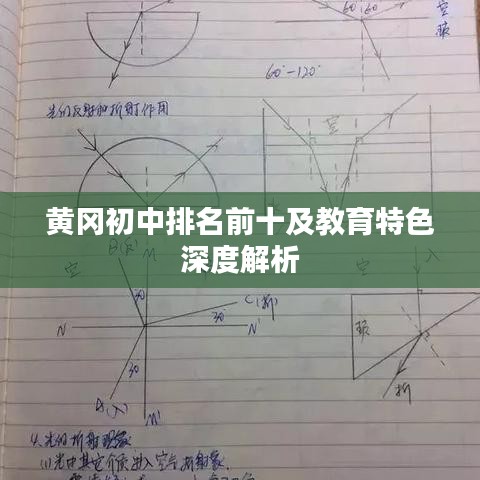 60° 60°
空
玻
60°-120°
光的反射和折射作用
空
黄冈初中排名前十及教育特色
深度解析
空
M
30
C(折)
N
30
N'
玻
折
M'
4.光的折射现象
(1)光由其它介质进入空气折射象.